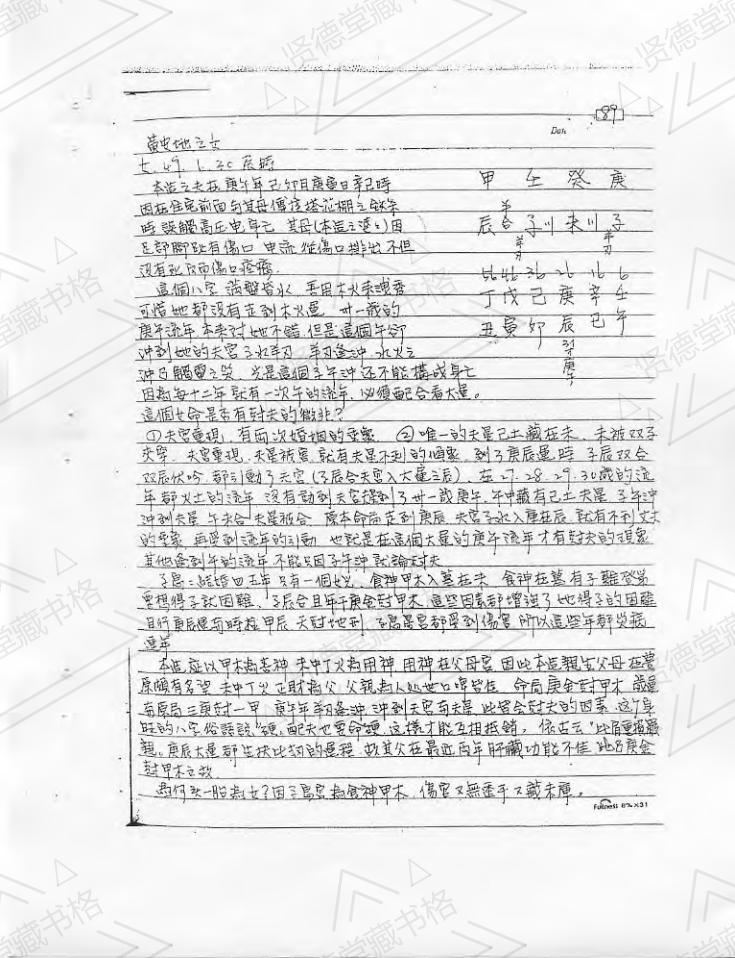 89
Date
黃皮地之女
七、49、1、20 辰時
本造之夫在庚午年己卯月庚寅日辛巳時
因在住家前面為其母修徒搭花棚之鉄架
時誤觸高压电身亡 其母(本造之婆)因
足部脚趾有傷口 电流從傷口排出不但
沒有死反而傷口痊癒
這個八字 滿盤皆水 喜用木火來洩秀
可惜她都沒有走到木火運 卅一歲的
庚午流年本來对她不錯 但是這個午卻
冲到她的夫宮子水羊刃 羊刃逢冲 水火之
冲乃觸電之災 光是這個子午冲还不能構成身亡
因為每十二年就有一次午的流年,必須配合看大運。
這個女命是否有尅夫的徵兆?
甲 壬 癸 庚
辰 合 子 川 未 川 子
羊刃
56 46 36 26 16 6
丁 戊 己 庚 辛 壬
丑 寅 卯 辰 巳 午
31才庚午
①夫宮重現,有两次婚姻的現象 ②唯一的夫星己土藏在未,未被双子
夾穿 夫宮重現 夫星被害 就有夫星不利的現象 到了庚辰運時 子辰双合
双辰伏吟 都引動了夫宮(子辰合夫宮入大運之辰) 在27.28.29.30歲的流
年都火土的流年 沒有動到夫宮 拖到了卅一歲庚午 午中藏有己土夫星 子午冲
冲到夫星 午未合 夫星被合 原本命局走到庚辰 夫宮子水入庫在辰 就有不利丈夫
的現象 再受到流年的引動 也就是在這個大運的庚午流年才有尅夫的現象
其他逢到午的流年不能只因子午冲就論尅夫
結婚四五年只有一個女兒 食神甲木入墓在未 食神在墓 有子難登第
要想得子就困難、子辰合且年干庚金尅甲木 這些因素都增強了她得子的困難
且行庚辰運与時柱甲辰 天尅地刑 子息宮都受到傷害 所以這些年都災病
連年
本造应以甲木為喜神 未中丁火為用神 用神在父母宮 因此本造親生父母在當
原頗有名望 未中丁火正財為父 父親為人処世口啤皆佳 命局庚金尅甲木 歲運
与原局三庚尅一甲 庚午年羊刃逢冲 冲到夫宮与夫星 此皆会尅夫的因素 這个身
旺的八字俗語說“硬”配夫也要命硬 這樣才能互相抵銷。依古云“比肩重損嚴
親。庚辰大運都生扶比刼的運程 故其父在最近两年肝臟功能不佳 此乃庚金
尅甲木之故
為何头一胎為女?因子息宮為食神甲木 傷官又無透干又藏未庫。
Fullness